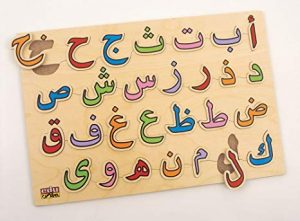 أ ب ت ث ج ح خ
د ذ ر ز س ش ص
ض ط ظ ع غ ف ق
ك ل م ن ه و ي
edu